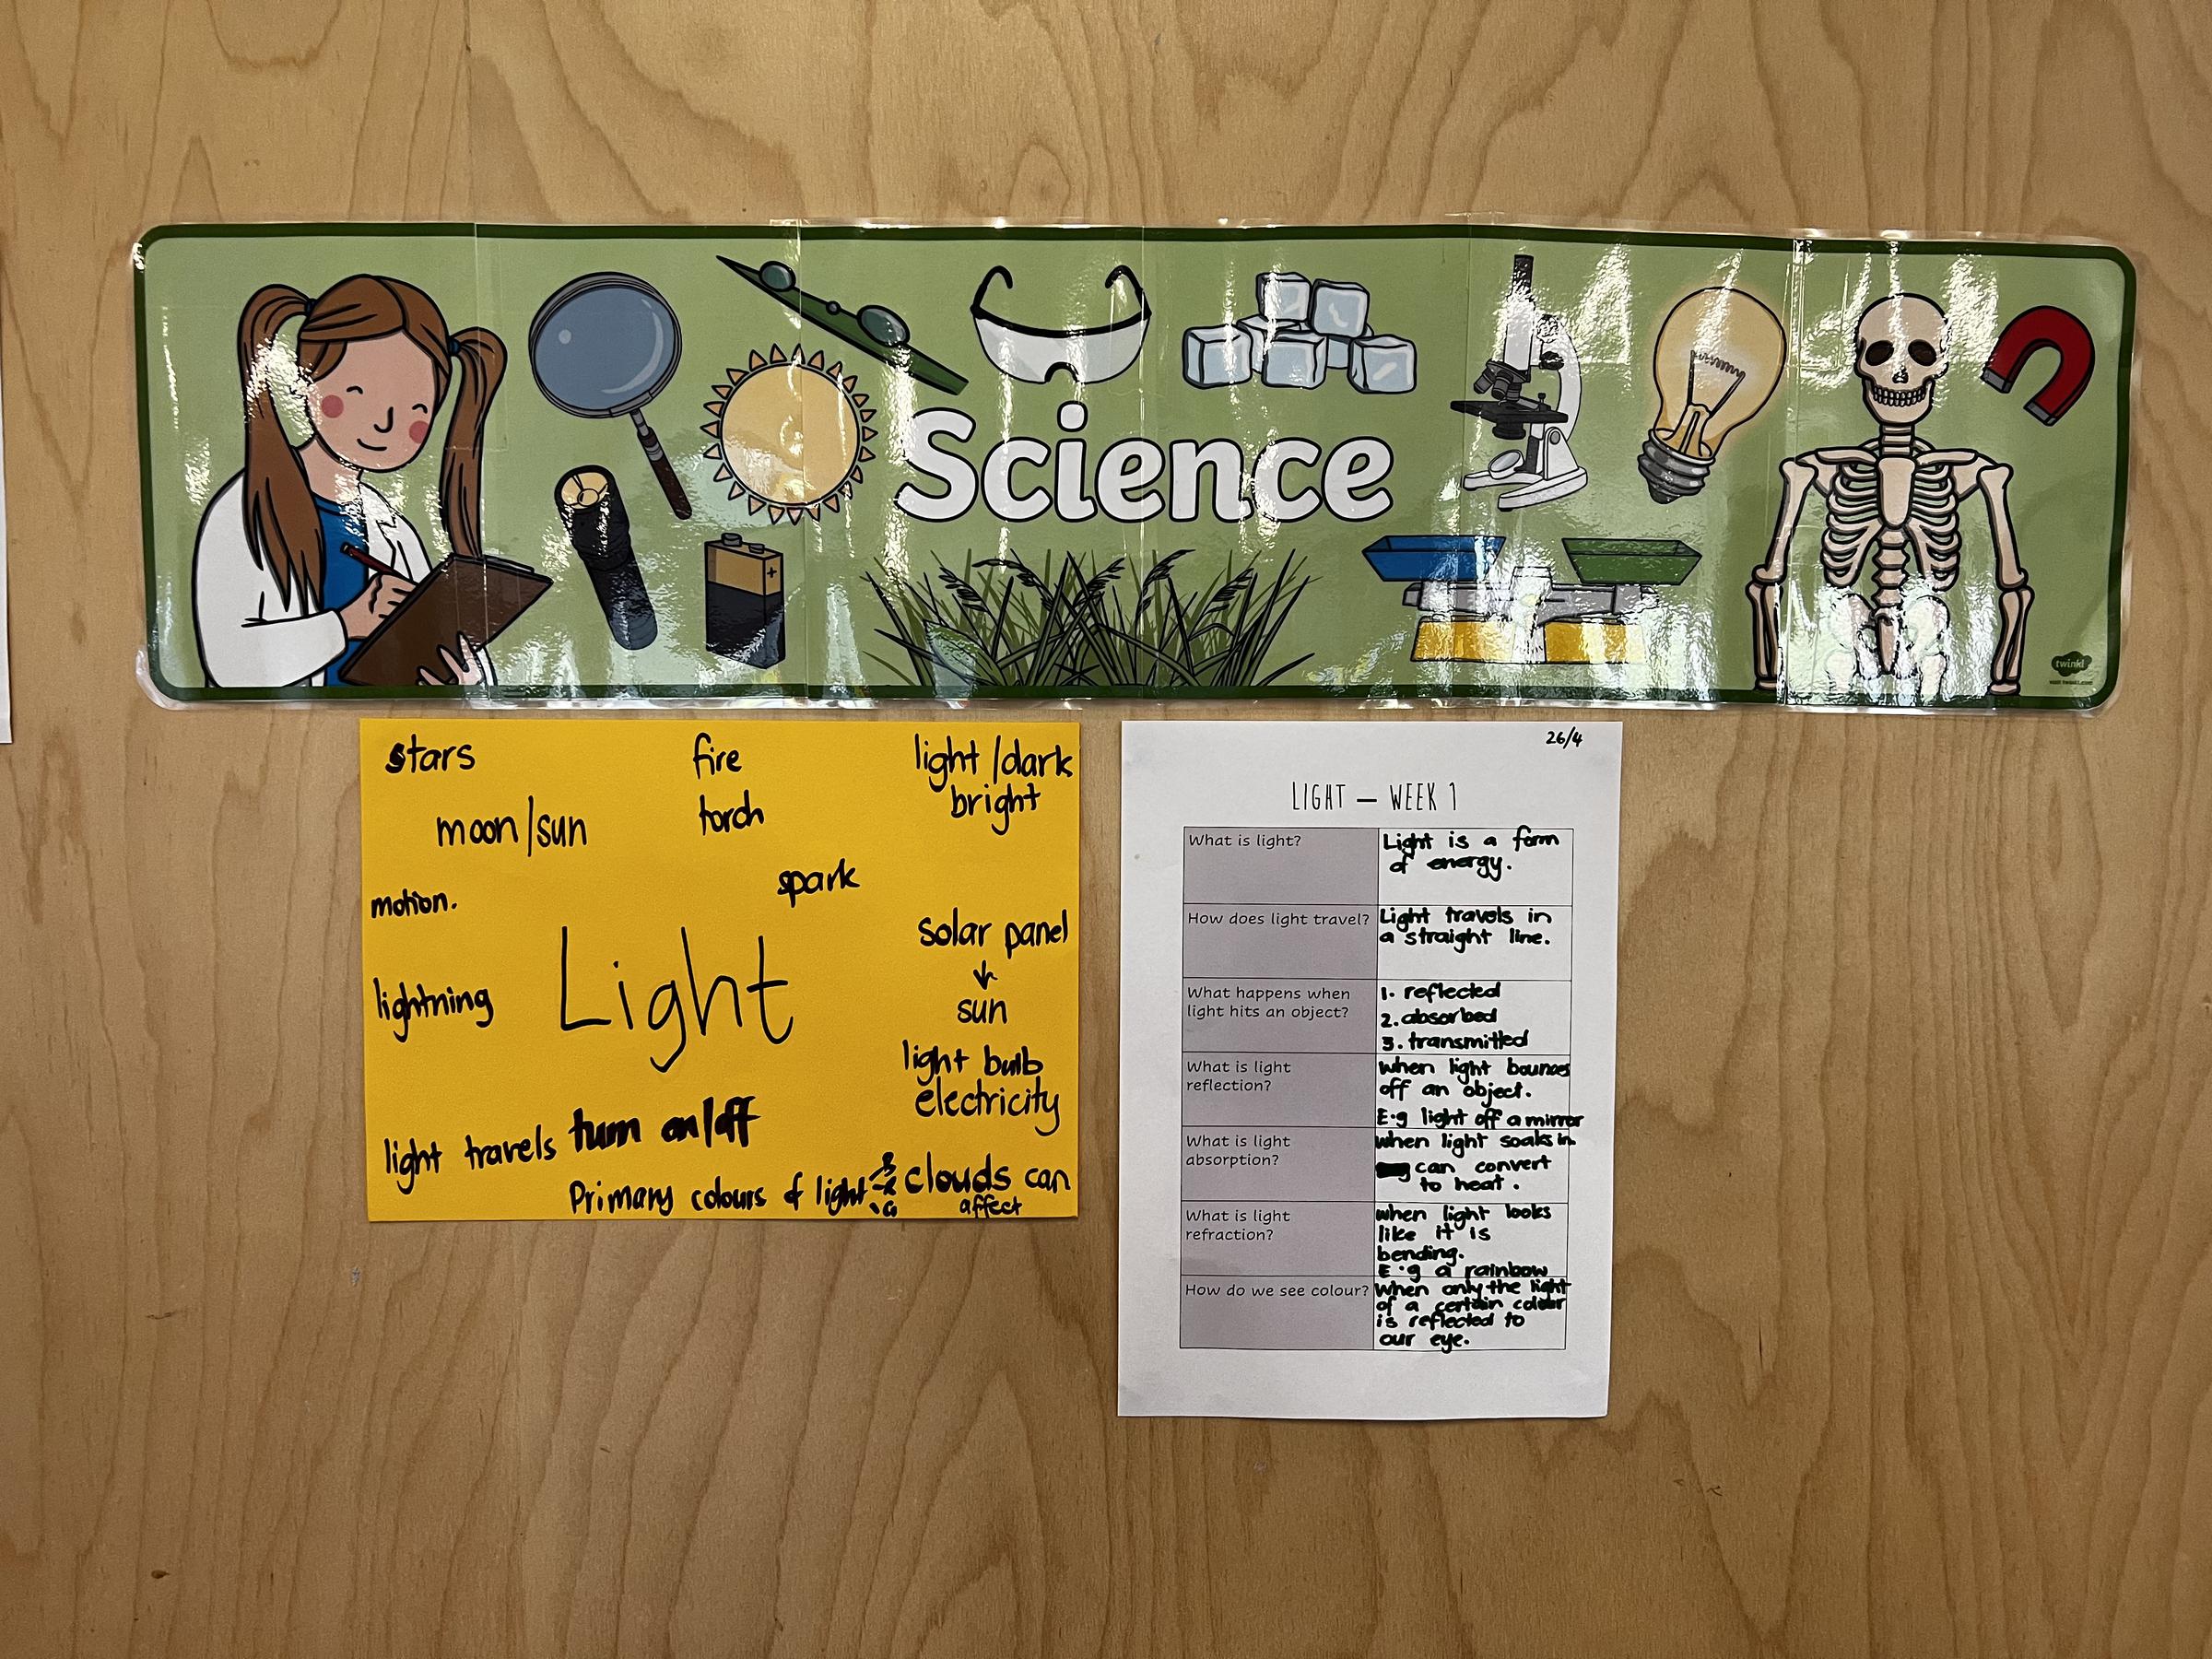 Science
twinkl
stars
fire
light/dark
bright
moon/sun
torch
spark
motion.
solar panel
sun
Light
lightning
light bulb
electricity
turn on/off
light travels
Primary colours of light
clouds can
affect
26/4
LIGHT — WEEK 1
What is light?
Light is a form
of energy.
How does light travel?
Light travels in
a straight line.
What happens when
light hits an object?
1. reflected
2. absorbed
3. transmitted
What is light
reflection?
when light bounces
off an object.
E.g light off a mirror
What is light
absorption?
when light soaks in
can convert
to heat.
What is light
refraction?
when light looks
like it is
bending.
E.g a rainbow
How do we see colour?
When only the light
of a certain colour
is reflected to
our eye.